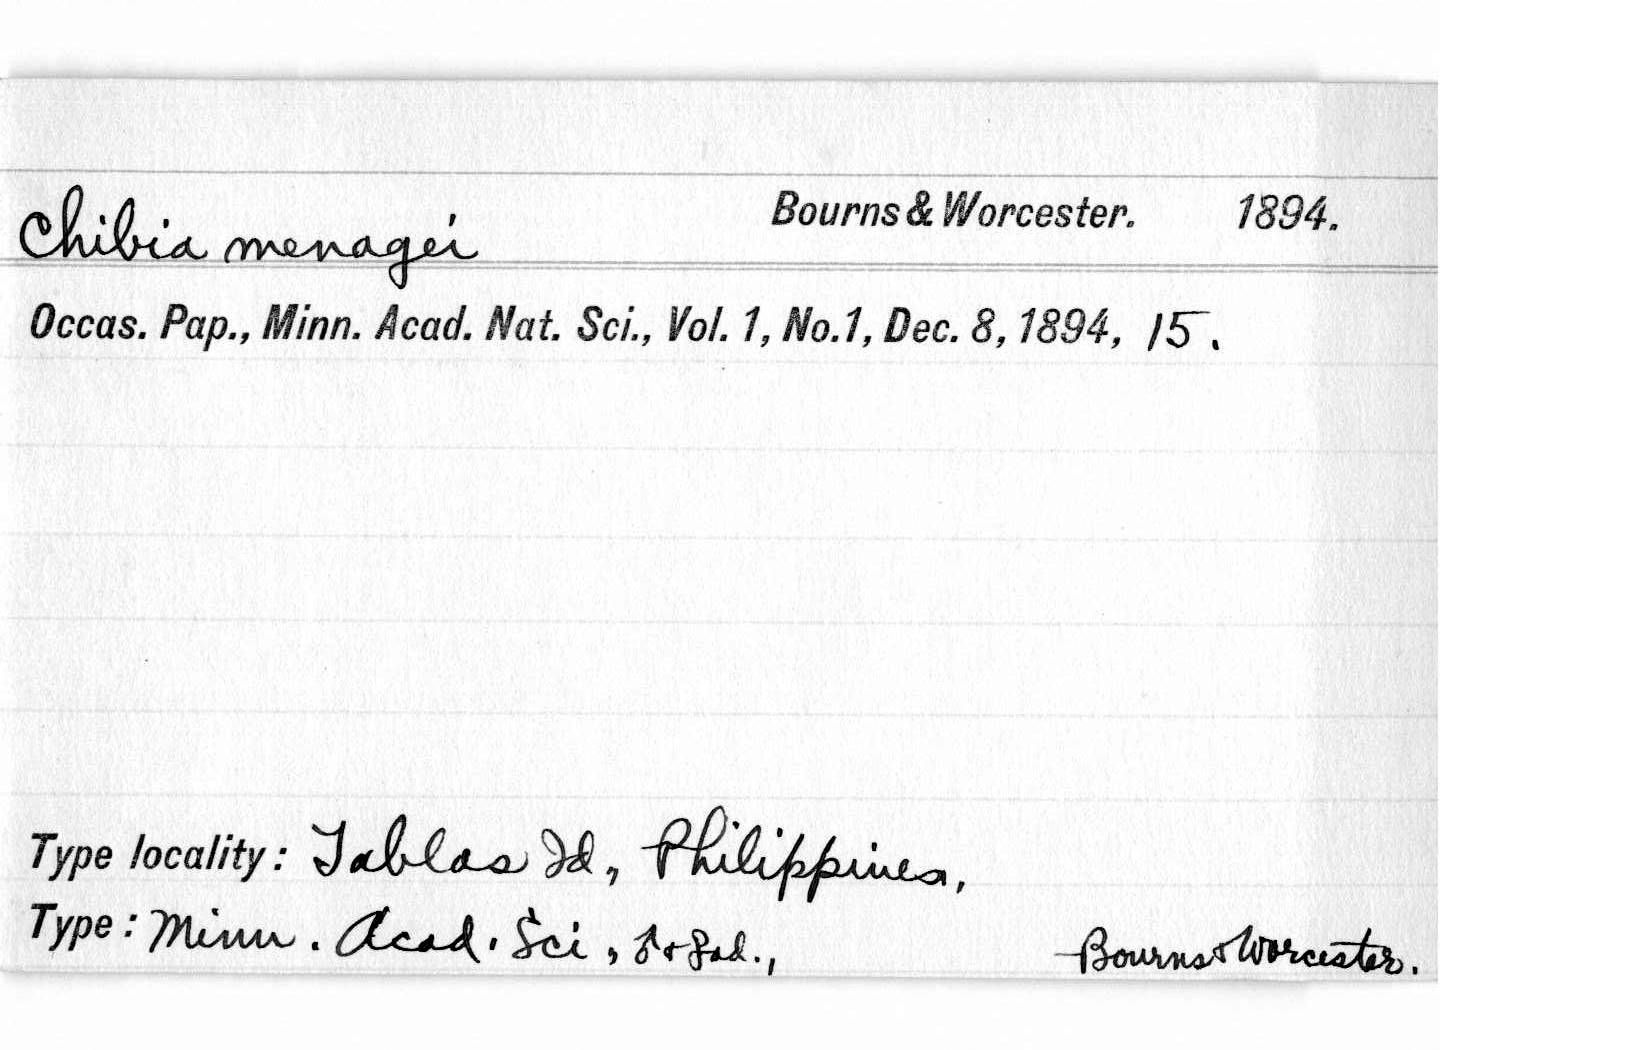 Chibia menagei Bourns & Worcester. 1894.
Occas. Pap., Minn. Acad. Nat. Sci., Vol. 1, No. 1, Dec. 8, 1894, 15.
Type locality: Tablas Id, Philippines,
Type: Minn. Acad. Sci, ♂ + ♀ ad., Bourns & Worcester.